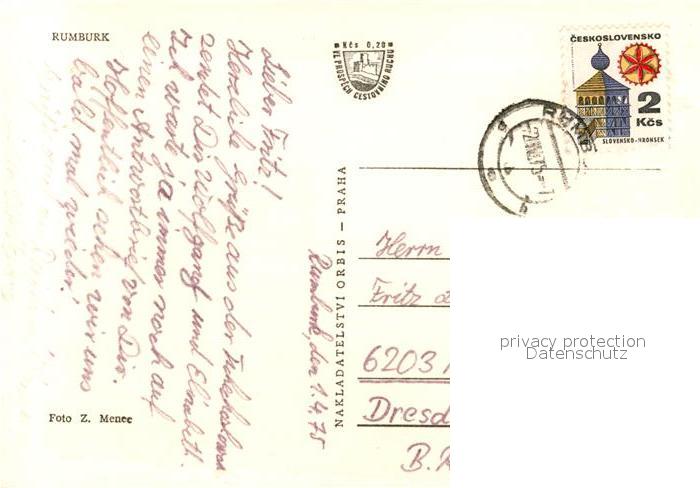 RUMBURK
Kčs 0,20
VE PROSPĚCH CESTOVNÍHO RUCHU
ČESKOSLOVENSKO
2
Kčs
SLOVENSKO-HRONSEK
RUMB
Lieber Fritz!
Herzliche Grüße aus der Tschechoslowak
sendet Dir Wolfgang und Elisabeth.
Ich warte ja immer noch auf
einen Antwortbrief von Dir.
Hoffentlich sehen wir uns
bald mal wieder!
Rumburk, den 1.4.75
NAKLADATELSTVÍ ORBIS — PRAHA
Herrn
Fritz
6203
Dresd
B.
Foto Z. Menec
privacy protection
Datenschutz